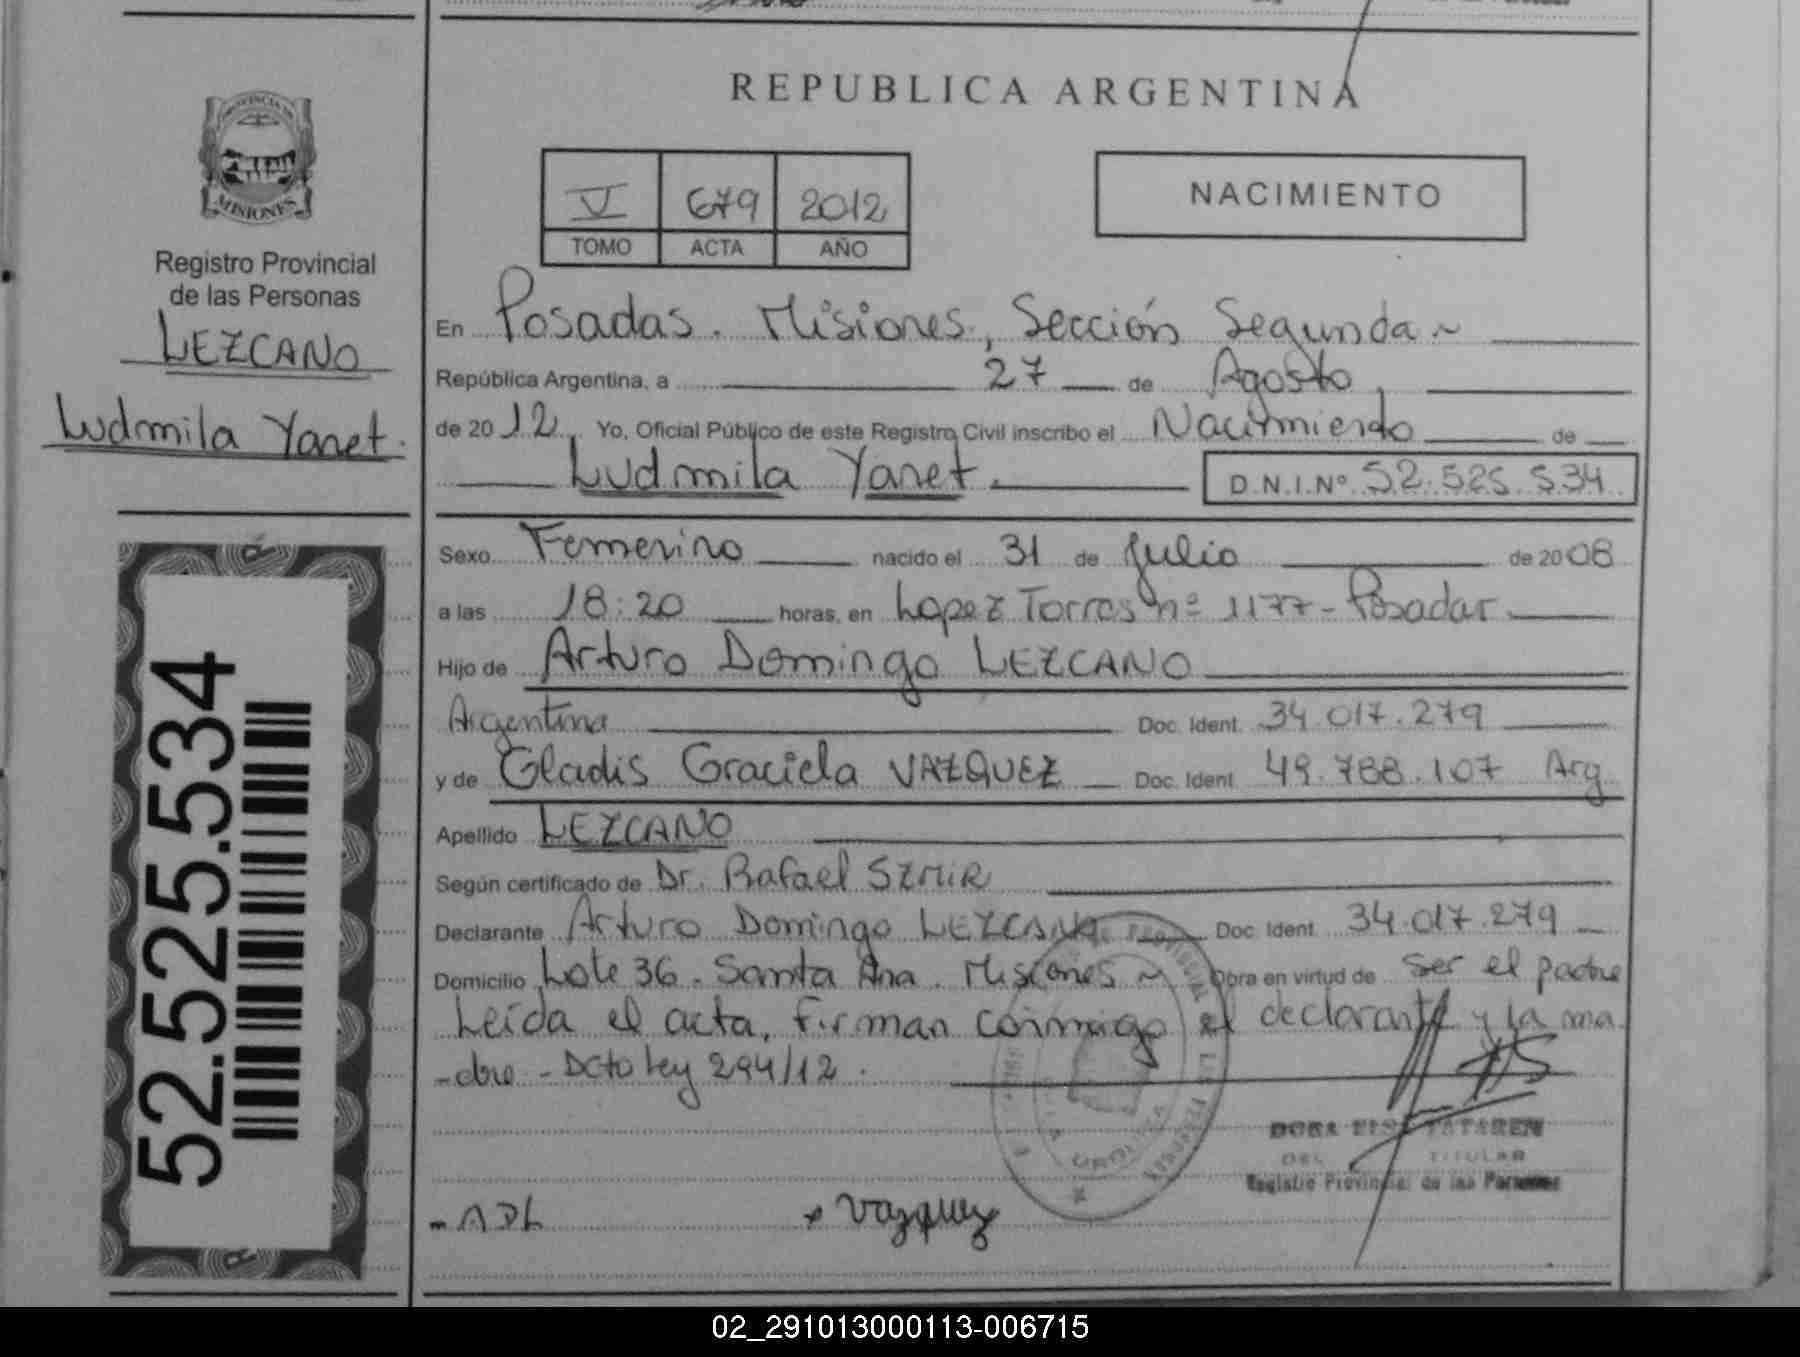 REPUBLICA ARGENTINA
PROVINCIA DE
MISIONES
Registro Provincial
de las Personas
LEZCANO
Ludmila Yanet.
52.525.534
V 679 2012
TOMO ACTA AÑO
NACIMIENTO
En Posadas. Misiones, Sección Segunda ~
República Argentina, a 27 de Agosto,
de 2012, Yo, Oficial Público de este Registro Civil inscribo el Nacimiento de
Ludmila Yanet. D.N.I.Nº 52.525.534
Sexo Femenino nacido el 31 de Julio de 2008
a las 18:20 horas, en Lopez Torres nº 1177 - Posadas.
Hijo de Arturo Domingo LEZCANO
Argentina Doc. Ident. 34.017.279
y de Gladis Graciela VAZQUEZ Doc. Ident. 49.788.107 Arg
Apellido LEZCANO
Según certificado de Dr. Rafael SZMIR
Declarante Arturo Domingo LEZCANO Doc. Ident. 34.017.279
Domicilio Lote 36. Santa Ana. Misiones ~ Obra en virtud de ser el padre
Leída el acta, firman conmigo el declarante y la ma
-dre - Dcto Ley 294/12.
DORA
TITULAR
Registro Provincial de las Personas
- ADL Vazquez
02_291013000113-006715